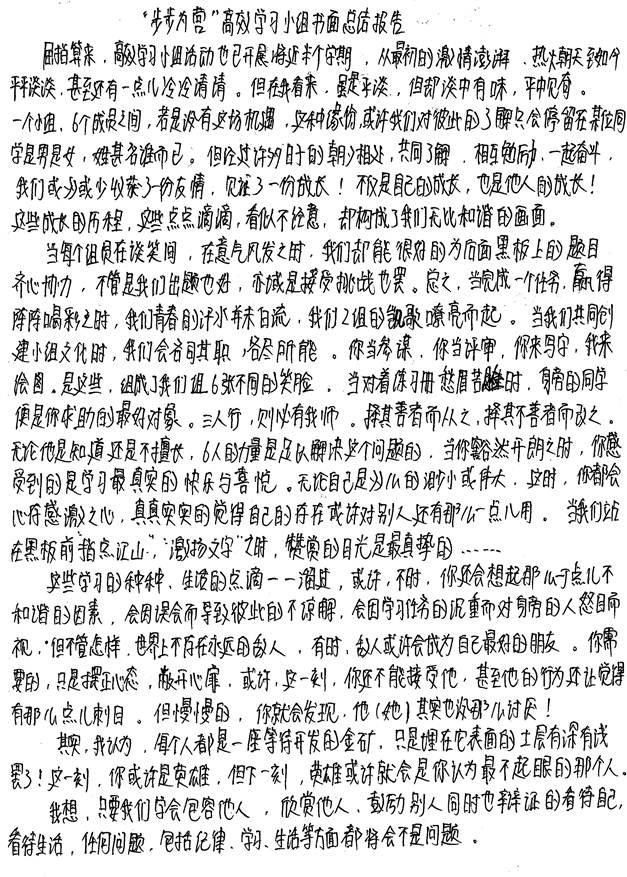 “步步为营”高效学习小组书面总结报告
屈指算来，高效学习小组活动也已开展将近半个学期，从最初的激情澎湃、热火朝天至如今
平平淡淡，甚至还有一点儿冷冷清清。但在我看来，虽是平淡，但却淡中有味，平中见奇。
一个小组，6个成员之间，若是没有这场机遇，这种缘份，或许我们对彼此的了解只会停留在某位同
学是男是女，姓甚名谁而已。但经过许多日子的朝夕相处，共同了解，相互勉励，一起奋斗，
我们或多或少收获了一份友情，见证了一份成长！不仅是自己的成长，也是他人的成长！
这些成长的历程，这些点点滴滴，看似不经意，却构成了我们无比和谐的画面。
当每个组员在谈笑间，在意气风发之时，我们却能很好的为后面黑板上的题目
齐心协力，不管是我们出题也好，亦或是接受挑战也罢。总之，当完成一个任务，赢得
阵阵喝彩之时，我们青春的汗水并未白流，我们2组的凯歌嘹亮而起。当我们共同创
建小组文化时，我们会各司其职，各尽所能。你当参谋，你当评审，你来写字，我来
绘图。是这些，组成了我们组6张不同的笑脸。当对着练习册愁眉苦脸时，身旁的同学
便是你求助的最好对象。三人行，则必有我师。择其善者而从之，择其不善者而改之。
无论他是知道还是不擅长，6人的力量是足以解决这个问题的，当你豁然开朗之时，你感
受到的是学习最真实的快乐与喜悦。无论自己是多么的渺小或伟大，这时，你都会
心存感激之心，真真实实的觉得自己的存在或许对别人还有那么一点儿用。当我们站
在黑板前“指点江山”，“激扬文字”之时，赞赏的目光是最真挚的……
这些学习的种种、生活的点滴一一溜过，或许，不时，你还会想起那么一点儿不
和谐的因素，会因误会而导致彼此的不谅解，会因学习任务的沉重而对身旁的人怒目而
视，但不管怎样，世界上不存在永远的敌人，有时，敌人或许会成为自己最好的朋友。你需
要的，只是摆正心态，敞开心扉，或许，这一刻，你还不能接受他，甚至他的行为还让觉得
有那么点儿刺目。但慢慢的，你就会发现，他（她）其实也没那么讨厌！
其实，我认为，每个人都是一座等待开发的金矿，只是埋在它表面的土层有深有浅
罢了！这一刻，你或许是英雄，但下一刻，英雄或许就会是你认为最不起眼的那个人。
我想，只要我们学会包容他人，欣赏他人、鼓励别人同时也辩证的看待自己，
看待生活，任何问题，包括纪律、学习、生活等方面都将会不是问题。